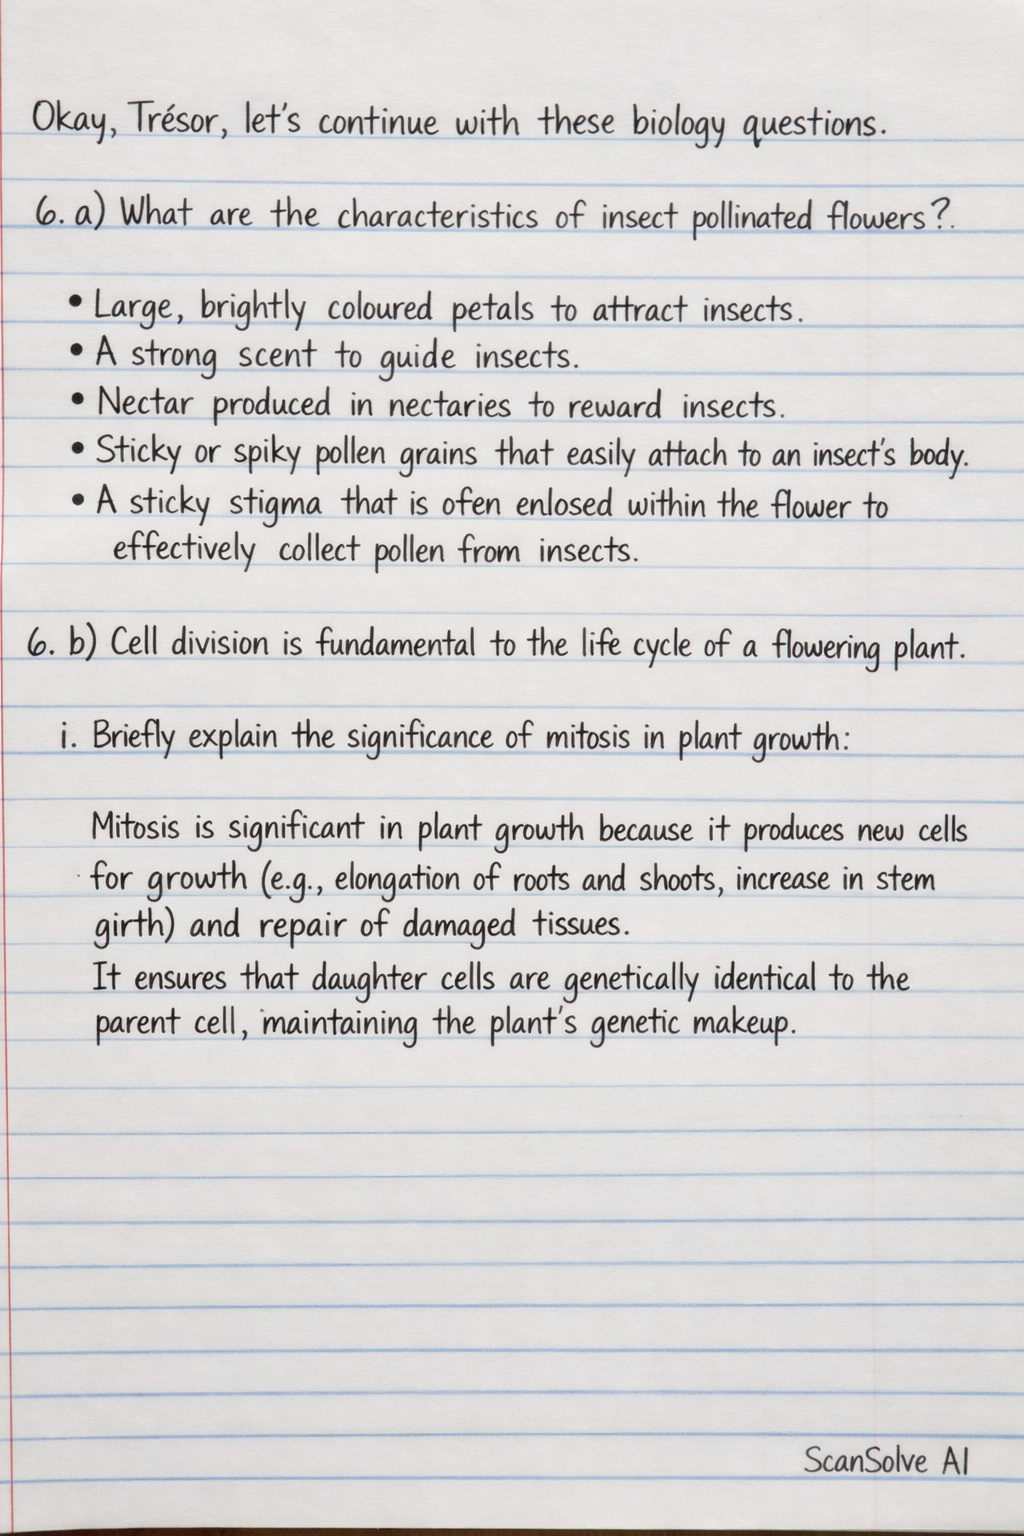 Okay, Trésor, let's continue with these biology questions.
6. a) What are the characteristics of insect pollinated flowers?.
• Large, brightly coloured petals to attract insects.
• A strong scent to guide insects.
• Nectar produced in nectaries to reward insects.
• Sticky or spiky pollen grains that easily attach to an insect's body.
• A sticky stigma that is ofen enlosed within the flower to
effectively collect pollen from insects.
6. b) Cell division is fundamental to the life cycle of a flowering plant.
i. Briefly explain the significance of mitosis in plant growth:
Mitosis is significant in plant growth because it produces new cells
for growth (e.g., elongation of roots and shoots, increase in stem
girth) and repair of damaged tissues.
It ensures that daughter cells are genetically identical to the
parent cell, maintaining the plant's genetic makeup.
ScanSolve AI